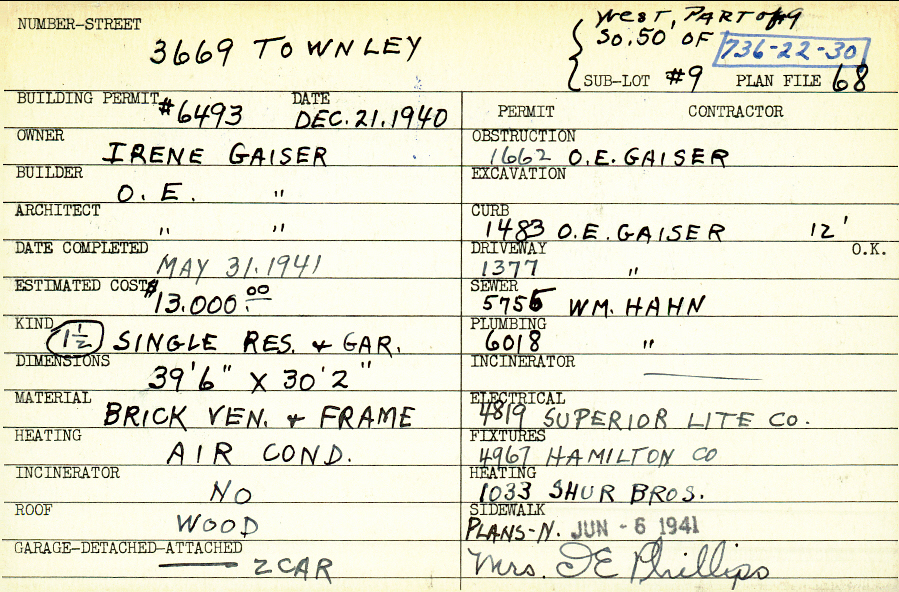 NUMBER-STREET
3669 TOWNLEY
WEST, PART of #9
SO. 50' OF 736-22-30
SUB-LOT #9 PLAN FILE 68
BUILDING PERMIT #6493 DATE DEC. 21. 1940
OWNER
IRENE GAISER
BUILDER
O. E. "
ARCHITECT
" "
DATE COMPLETED
MAY 31. 1941
ESTIMATED COST $13.000.00
KIND
1½ SINGLE RES. & GAR.
DIMENSIONS
39'6" X 30'2"
MATERIAL
BRICK VEN. & FRAME
HEATING
AIR COND.
INCINERATOR
NO
ROOF
WOOD
GARAGE-DETACHED-ATTACHED
2 CAR
PERMIT CONTRACTOR
OBSTRUCTION
1662 O.E. GAISER
EXCAVATION
CURB
1483 O.E. GAISER 12'
DRIVEWAY O.K.
1377 "
SEWER
5755 WM. HAHN
PLUMBING
6018 "
INCINERATOR
ELECTRICAL
4819 SUPERIOR LITE CO.
FIXTURES
4967 HAMILTON CO
HEATING
1033 SHUR BROS.
SIDEWALK
PLANS-N. JUN - 6 1941
Mrs. I E Phillips